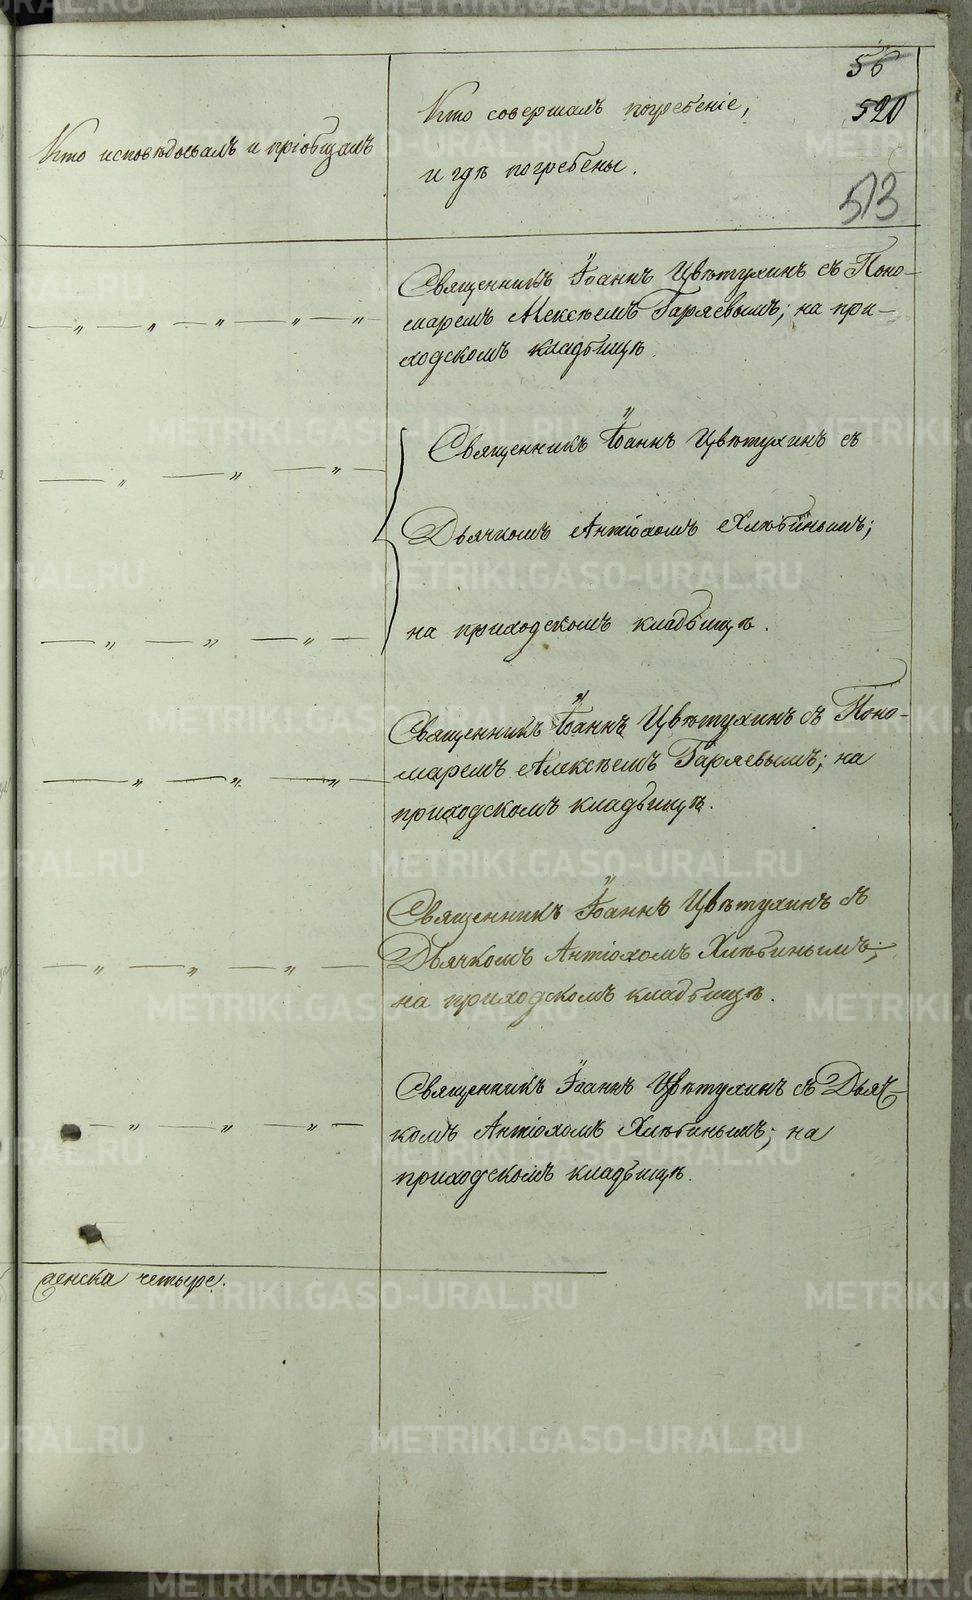 56
520
513
Кто исповѣдовалъ и пріобщалъ
Кто совершалъ погребеніе,
и гдѣ погребены.
Священникъ Іоаннъ Цвѣтухинъ съ Поно-
маремъ Алексѣемъ Гаряевымъ; на при-
ходскомъ кладбищѣ.
Священникъ Іоаннъ Цвѣтухинъ съ
Дьячкомъ Антіохомъ Хлѣбинымъ;
на приходскомъ кладбищѣ.
Священникъ Іоаннъ Цвѣтухинъ съ Поно-
маремъ Алексѣемъ Гаряевымъ; на
приходскомъ кладбищѣ.
Священникъ Іоаннъ Цвѣтухинъ съ
Дьячкомъ Антіохомъ Хлѣбинымъ;
на приходскомъ кладбищѣ.
Священникъ Іоаннъ Цвѣтухинъ съ Дьяч-
комъ Антіохомъ Хлѣбинымъ; на
приходскомъ кладбищѣ.
женска четыре.
METRIKI.GASO-URAL.RU